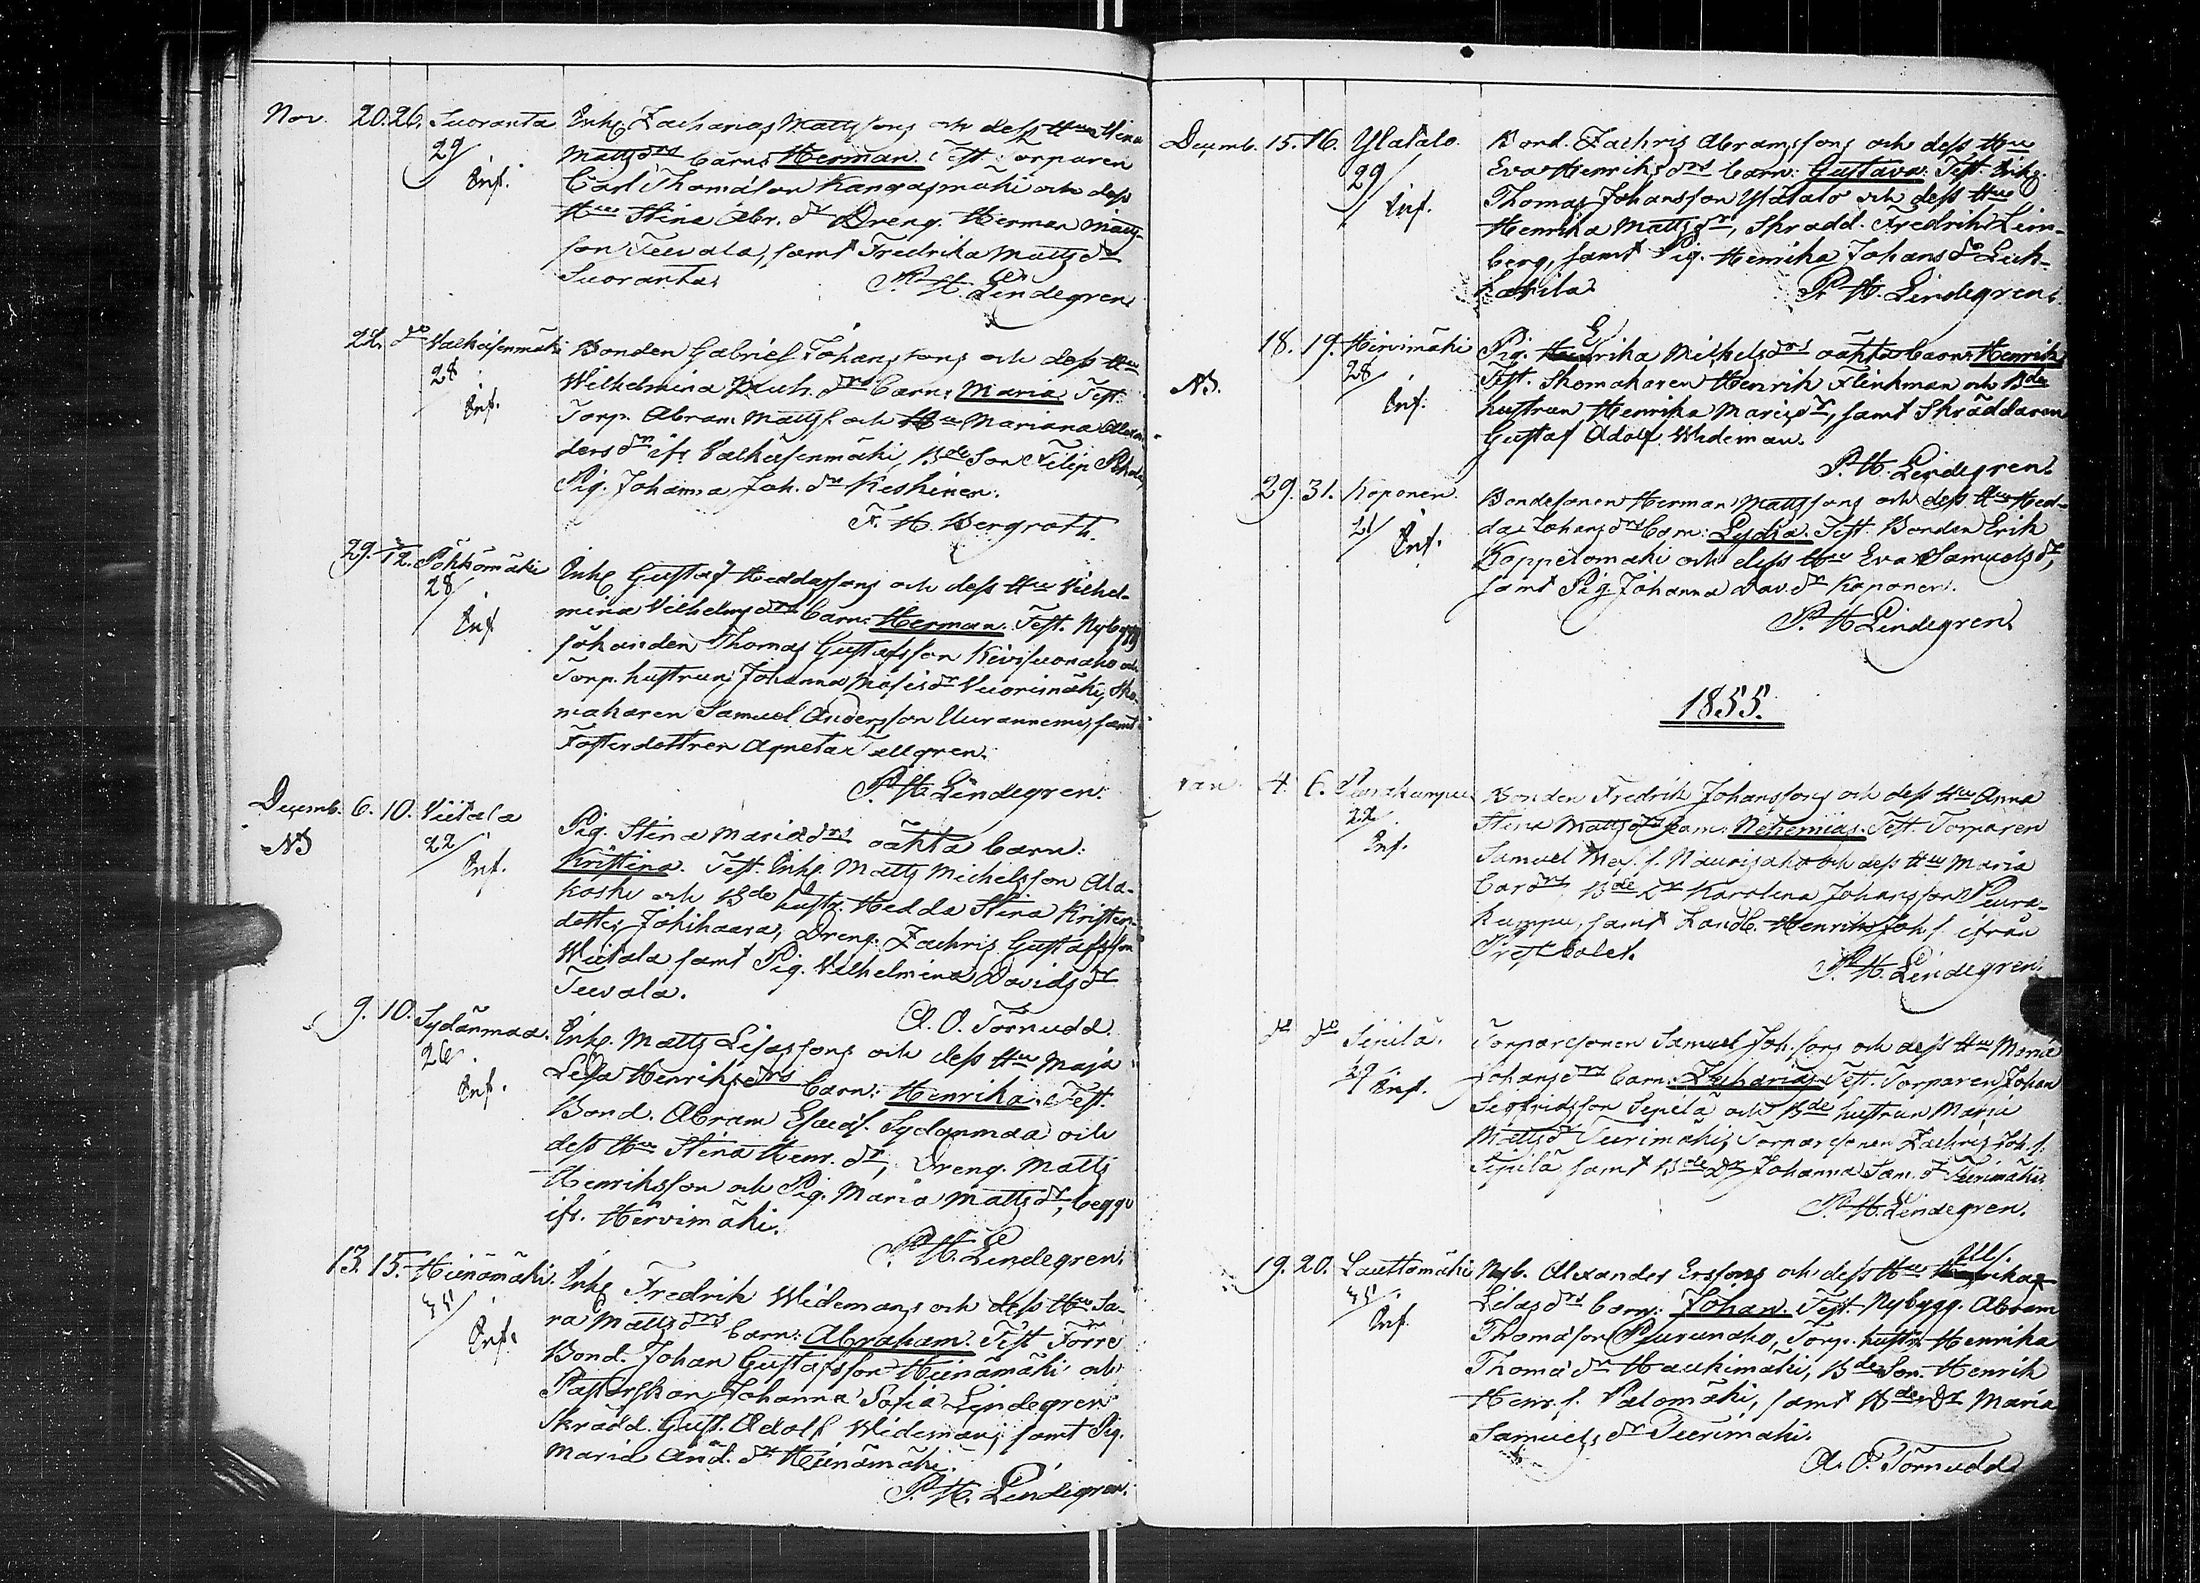 Nov. 20. 26. Suoranta Inh. Zacharias Mattssons och dess Hu Stina
29/ Mattsdrs barn: Herman. Test. Torparen
Inf. Carl Thomasson Kangasmäki och dess
Hu Stina Abr. dr Dreng. Herman Matts-
son Teevala, samt Fredrika Matts dr
Suoranta.
P. H. Lindegren.
22. do Valkeisenmäki Bonden Gabriel Johanssons och dess Hu
28/ Wilhelmina drs barn: Maria Test.
Inf. Torp. Abram Matts s. och Hu Mariana Alexan-
ders dr ifr. Valkeisenmäki, Bde Son Filip
Pig. Johanna Joh. dr Keskinen.
F. H. Bergroth.
29. 3/12. Pökkömäki Inh. Gustaf Heddassons och dess Hu Vilhel-
28/ mina Vilhelms drs barn: Herman. Test. Nybygg
Inf söhanden Thomas Gustafsson Kivisuonaho och
Torp. hustrun Johanna Moses dr Vuorimäki, Sko-
makaren Samuel Andersson Uuranniemi, samt
Fosterdottren Agneta Tellgren.
P. H. Lindegren.
Decemb. 6. 10. Viitala Pig. Stina Maria drs oäkta barn:
NB 22/ Kristina. Test. Inh. Matts Michelsson Ala-
Inf. koski och Bde hustr. Hedda Stina Kristers-
dotter Jokihaara, Dreng. Zachris Gustafsson
Wiitala samt Pig. Wilhelmina Davids dr
Teevala.
A. O. Törnudd.
9. 10. Sydänmaa. Inh. Matts Lisassons och dess Hu Maja
26. Lisa Henriks drs barn: Henrika. Test.
Inf. Bond. Abram Esaias. Sydänmaa och
dess Hu Stina Henr. dr, Dreng. Matts
Henriksson och Pig. Maria Matts dr, begge
ifr. Hirvimäki.
P. H. Lindegren.
13. 15. Heinämäki. Inh. Fredrik Widemans och dess Hu Sa-
35/ ra Matts drs barn: Abraham. Test Förre
Inf. Bond. Johan Gustafsson Heinämäki och
Pastorskan Johanna Sofia Lindegren
Skrädd. Gust. Adolf Wideman, samt Pig.
Maria And. dr Heinämäki.
P. H. Lindegren.
Decemb. 15. 16. Ylätalo. Bond. Zachris Abramssons och dess Hu
29/ Eva Henriks drs barn: Gustava. Test. Inh.
Inf. Thomas Johansson Ylätalo och dess Hu
Henrika Matts dr, Skrädd. Fredrik Lim-
berg, samt Pig. Henrika Johans dr Luh-
P. H. Lindegren.
18. 19. Hirvimäki Pig. rika Michels drs oäkta barn: Henrik
NB. 28/ Test. Skomakaren Henrik Flinkman och Bde
Inf. hustrun Henrika Maria dr, samt Skräddaren
Gustaf Adolf Wideman.
P. H. Lindegren.
29. 31. Koponen. Bondesonen Herman Mattssons och dess Hu Hed-
21/ da Johans drs barn: Lydia. Test. Bonden Erik
Inf. Koppelomäki och dess Hu Eva Samuels dr,
samt Pig. Johanna Dav. dr Koponen.
P. H. Lindegren.
1855.
Jan. 4. 6. Peurakumpu Bonden Fredrik Johanssons och dess Hu Anna
22 Stina Matts drs barn: Nehemias. Test. Torparen
Inf. Samuel s. Naurisaho och dess Hu Maria
Carl drs, Bde Dr Karolina Johansson Peura-
kumpu, samt Landb. Henrik Joh. s. ifrån
Prestbolet.
P. H. Lindegren.
do do Sipilä. Torparesonen Samuel Joh. sons och dess Hu Maria
27 Inf. Johans drs barn: Zacharias. Test. Torparen Johan
Segfridsson Sipilä och Bde hustrun Maria
Matts dr Tuurimäki, Torparesonen Zachris Joh. s.
Sipilä samt Bde Dr Johanna Sam. dr Tuurimäki.
P. H. Lindegren.
19. 20. Lauttamäki Nyb. Alexander Erssons och dess Hu Ull.
35/ Lisas drs barn: Johan. Test. Nybygg. Abram
Inf. Thomasson Puruaho, Torp. hustr. Henrika
Thoma dr Haukimäki, Bde Son. Henrik
Henr. s. Palomäki, samt Bde Dr Maria
Samuels dr Tuurimäki.
A. O. Törnudd